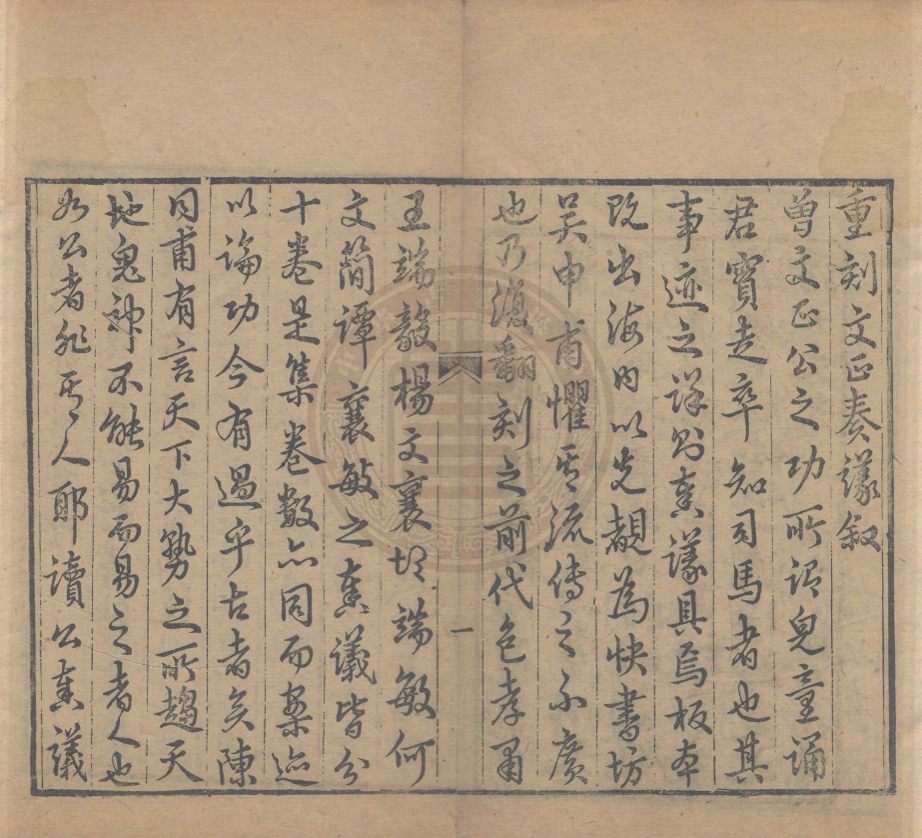 重刻文正奏議叙
曾文正公之功所謂兒童誦
君實走卒知司馬者也其
事迹之詳則奏議具焉板本
既出海内以先覩為快書坊
吴申甫懼其流傳之不廣
也乃復翻刻之前代包孝肅
一
王端毅楊文襄胡端敏何
文簡譚襄敏之奏議皆分
十卷是集卷數亦同而案迹
以論功今有過乎古者矣陳
同甫有言天下大勢之所趨天
地鬼神不能易而易之者人也
如公者非其人耶讀公奏議